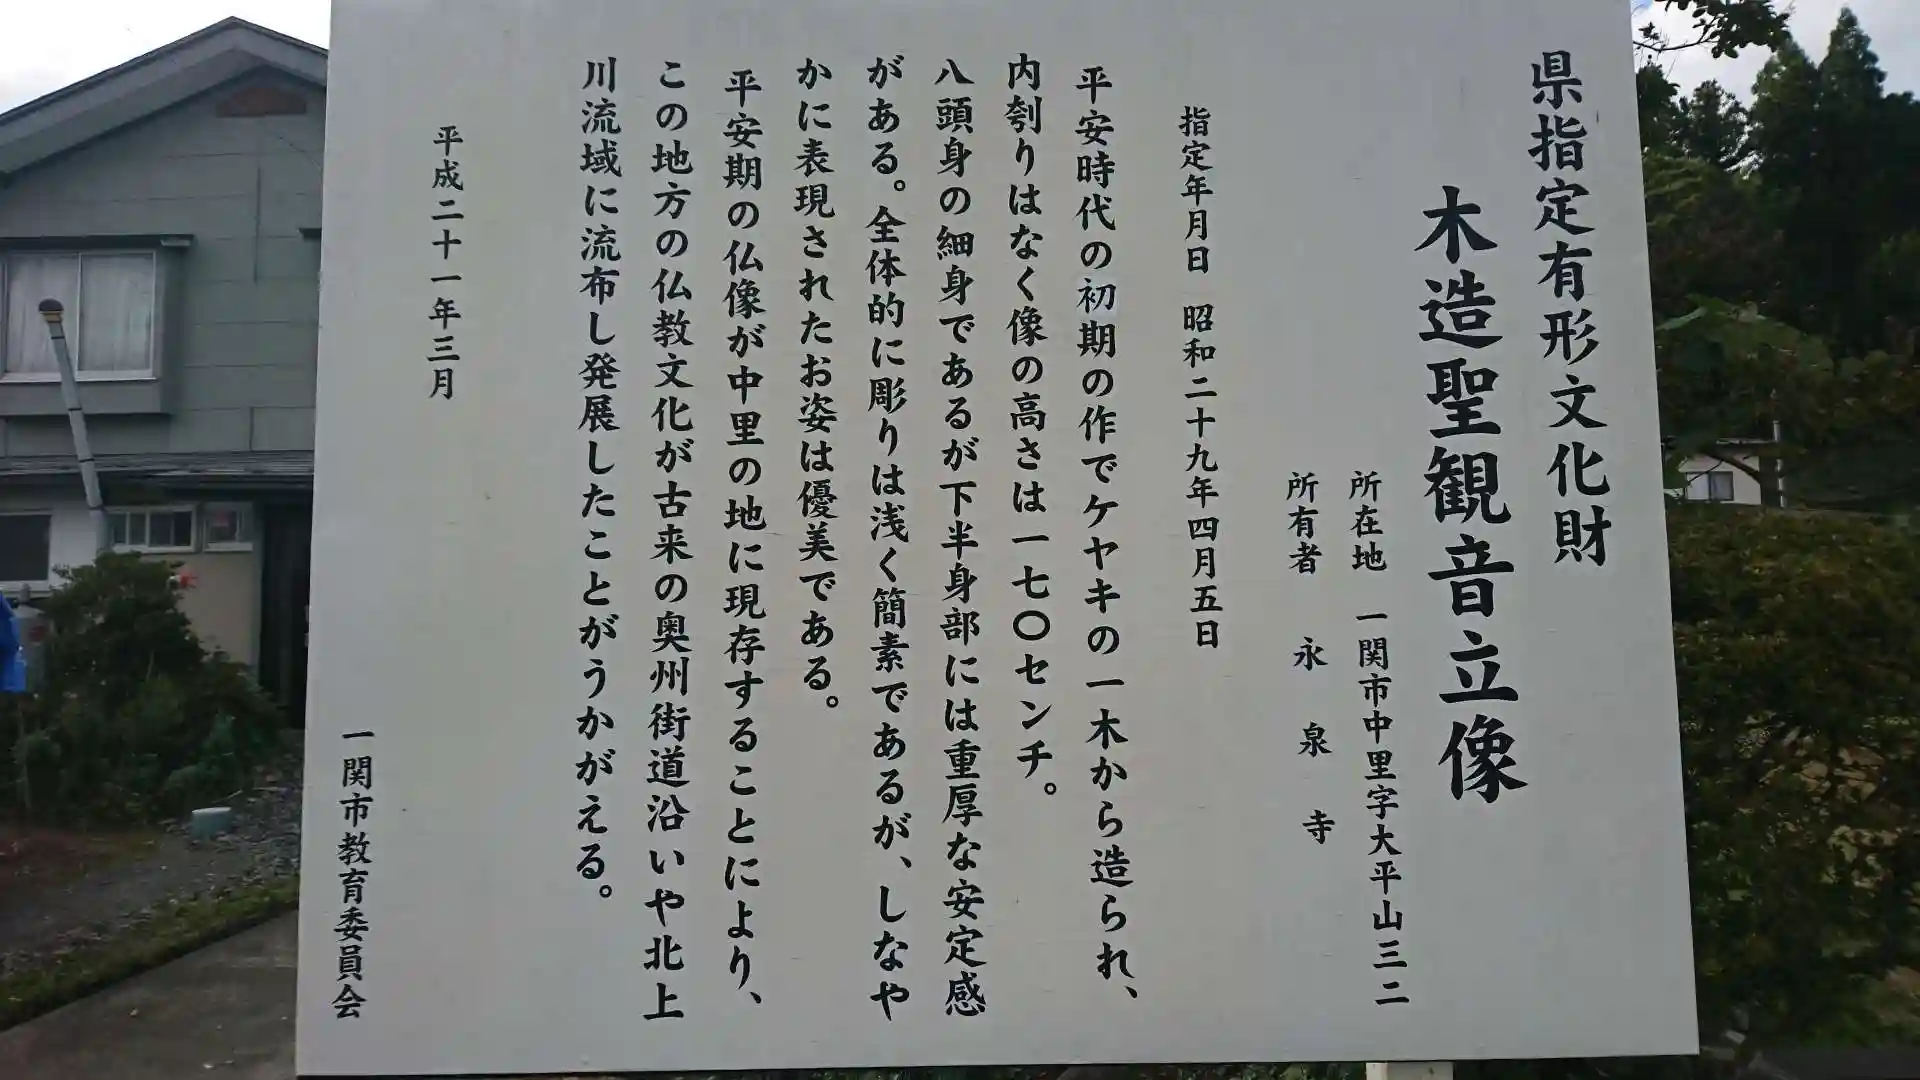 県指定有形文化財
木造聖観音立像
所在地 一関市中里字大平山三二
所有者 永泉寺
指定年月日 昭和二十九年四月五日
平安時代の初期の作でケヤキの一木から造られ、
内刳りはなく像の高さは一七〇センチ。
八頭身の細身であるが下半身部には重厚な安定感
がある。全体的に彫りは浅く簡素であるが、しなや
かに表現されたお姿は優美である。
平安期の仏像が中里の地に現存することにより、
この地方の仏教文化が古来の奥州街道沿いや北上
川流域に流布し発展したことがうかがえる。
平成二十一年三月
一関市教育委員会